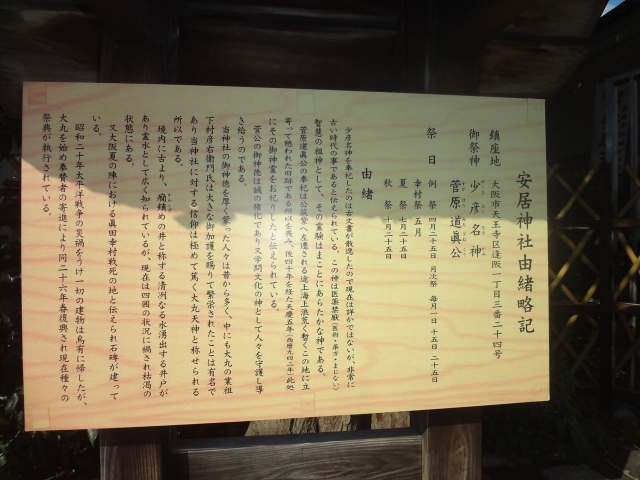 安居神社由緒略記
鎮座地 大阪市天王寺区逢阪一丁目三番二十四号
御祭神 少彦名神
菅原道眞公
祭日 例祭 四月二十五日 月次祭 毎月一日 十五日 二十五日
幸村祭 五月
夏祭 七月二十五日
秋祭 十月二十五日
由緒
少彦名神を奉祀したのは古文書が散逸したので現在は詳かではないが、非常に
古い時代の事であると伝えられている。この神は医薬禁厭(医術・薬方・まじない)
智慧の祖神として、その霊験はまことにあらたかな神である。
菅原道眞公の奉祀は公筑紫へ左遷される途上海上浪荒く暫くこの地に立
寄って憩われた旧跡である所以を畏み、後四十年を経た天慶五年(西暦九四二年)此処
にその御神霊をお祀りしたと伝えられている。
菅公の御神徳は誠の権化であり又学問文化の神として人々を守護し導
き給うのである。
当神社の御神徳を厚く蒙った人々は昔から多く、中にも大丸の業祖
下村彦右衛門氏は大きな御加護を賜りて繁栄されたことは有名で
あり当神社に対する信仰は極めて篤く大丸天神と称せられる
所以である。
境内に古より、癇鎮めの井と称する清冽なる水湧出する井戸が
あり霊水として広く知られているが、現在は四囲の状況に禍され枯渇の
状態にある。
又大阪夏の陣における真田幸村戦死の地と伝えられ石碑が建って
いる。
昭和二十年太平洋戦争の災禍をうけ一切の建物は烏有に帰したが、
大丸を始め奉賛者の寄進により同二十六年春復興され現在種々の
祭典が執行されている。